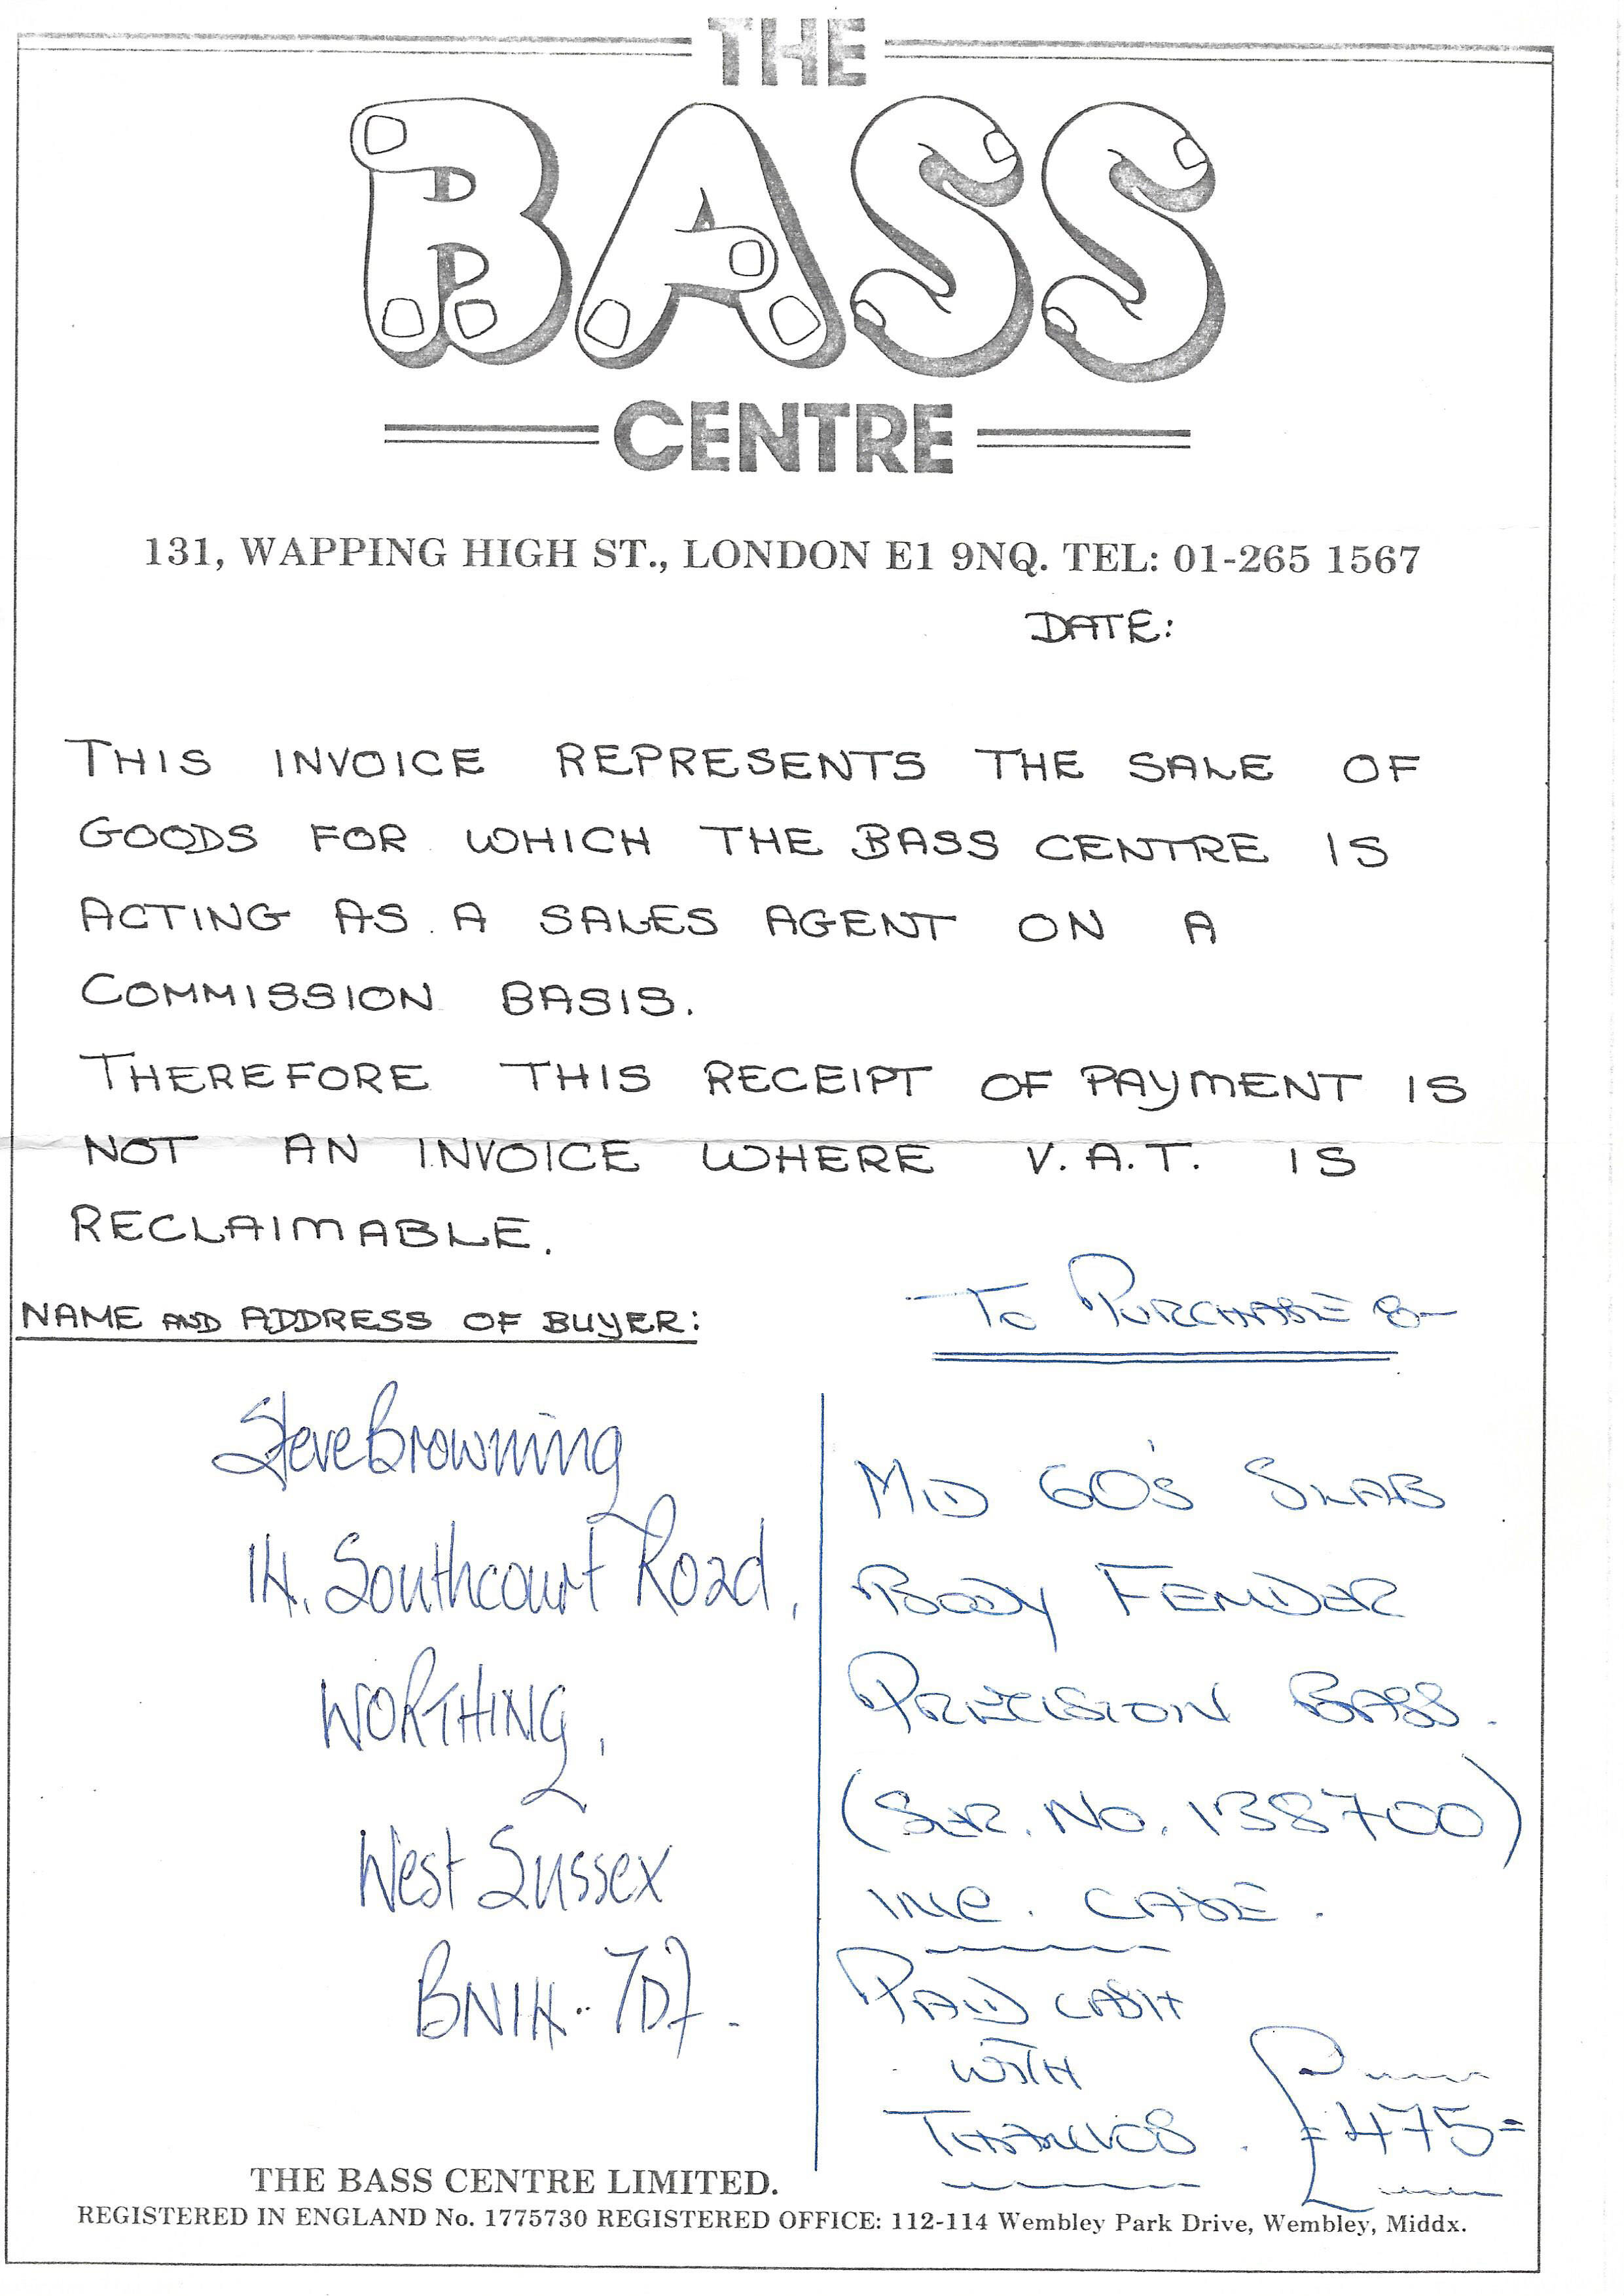 THE
BASS
CENTRE
131, WAPPING HIGH ST., LONDON E1 9NQ. TEL: 01-265 1567
DATE:
THIS INVOICE REPRESENTS THE SALE OF
GOODS FOR WHICH THE BASS CENTRE IS
ACTING AS A SALES AGENT ON A
COMMISSION BASIS.
THEREFORE THIS RECEIPT OF PAYMENT IS
NOT AN INVOICE WHERE V.A.T. IS
RECLAIMABLE.
NAME AND ADDRESS OF BUYER:
Steve Browning
14, Southcourt Road,
WORTHING,
West Sussex
BN14 · 7DF.
To PURCHASE :-
MID 60's SLAB
BODY FENDER
PRECISION BASS.
(SER. No. 138700)
INC. CASE.
PAID CASH
WITH
THANKS.
£475=
THE BASS CENTRE LIMITED.
REGISTERED IN ENGLAND No. 1775730 REGISTERED OFFICE: 112-114 Wembley Park Drive, Wembley, Middx.